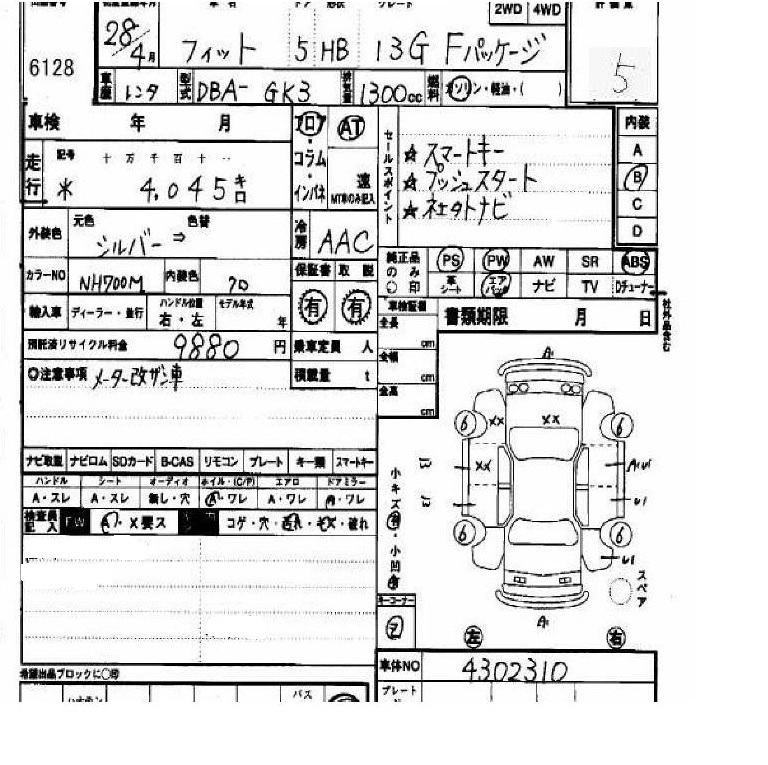 車名 ドア 形状 グレード
2WD 4WD
評価点
6128
28/4月 フィット 5 HB 13G Fパッケージ
5
車歴 レンタ 型式 DBA- GK3 排気量 1300cc 燃料 ガソリン・軽油・( )
車検 年 月
フロア・コラム・インパネ
AT
速
MT車のみ記入
走行
記号 十 万 千 百 十
* 4,045 キロ
セールスポイント
☆ スマートキー
☆ プッシュスタート
☆ 社外ナビ
内装
A
B
C
D
外装色 元色 シルバー ⇒ 色替
冷房 AAC
カラーNO NH700M 内装色 70
保証書 取説
有 有
純正品のみ○印
PS PW AW SR ABS
革シート エアバック ナビ TV Dチューナー
社外品含む
輸入車 ディーラー・並行 ハンドル位置 右・左 モデル年式 年
車検証欄
全長 cm
全幅 cm
全高 cm
書類期限 月 日
預託済リサイクル料金 9880 円
乗車定員 人
積載量 t
◎注意事項 メーター改ザン車
ナビ取説 ナビロム SDカード B-CAS リモコン プレート キー類 スマートキー
ハンドル シート オーディオ ホイル・(C/P) エアロ ドアミラー
A・スレ A・スレ 無し・穴 A・ワレ A・ワレ A・ワレ
検査員記入 FW A・X要ス コゲ・穴・汚れ・キズ・破れ
小キズ 有・小凹 有
A
XX XX
6 6
XX
A1U1
U1
6 6
U1
A
スペア
キーコーナー
左 右
希望出品ブロックに○印
車体NO 4302310
プレート
バス